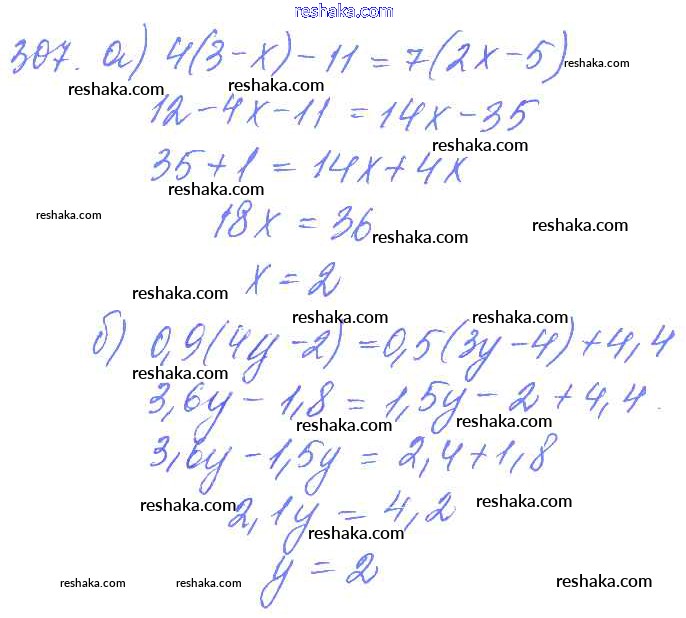 reshaka.com
307. а) 4(3-x)-11=7(2x-5) reshaka.com
reshaka.com reshaka.com
12-4x-11=14x-35
reshaka.com
35+1=14x+4x
reshaka.com
reshaka.com 18x=36 reshaka.com reshaka.com
reshaka.com x=2
reshaka.com reshaka.com
б) 0,9(4y-2)=0,5(3y-4)+4,4
reshaka.com
3,6y-1,8=1,5y-2+4,4.
reshaka.com reshaka.com
3,6y-1,5y=2,4+1,8
reshaka.com 2,1y=4,2 reshaka.com
reshaka.com
y=2
reshaka.com reshaka.com reshaka.com